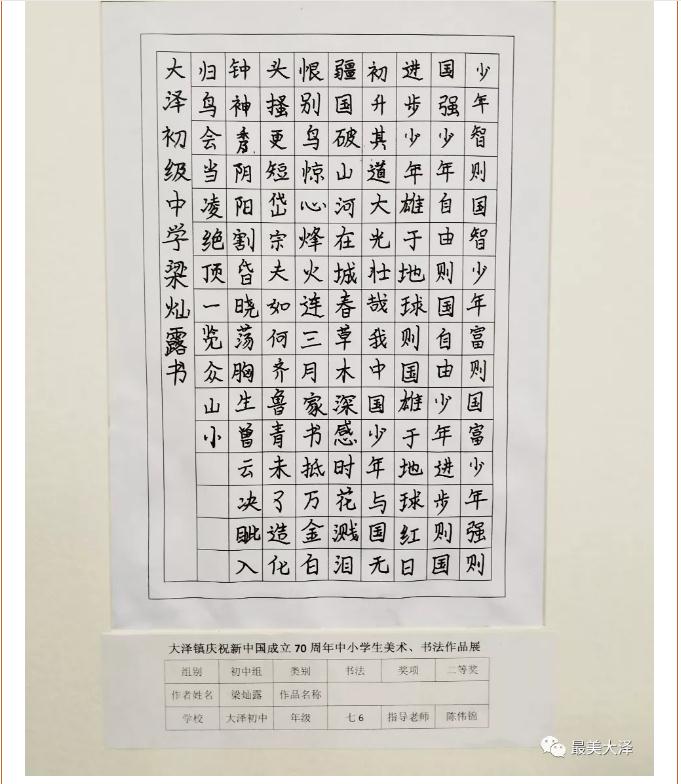 少年智则国智少年富则国富少年强则
国强少年自由则国自由少年进步则国
进步少年雄于地球则国雄于地球红日
初升其道大光壮哉我中国少年与国无
疆国破山河在城春草木深感时花溅泪
恨别鸟惊心烽火连三月家书抵万金白
头搔更短岱宗夫如何齐鲁青未了造化
钟神秀阴阳割昏晓荡胸生曾云决眦入
归鸟会当凌绝顶一览众山小
大泽初级中学梁灿露书
大泽镇庆祝新中国成立70周年中小学生美术、书法作品展
组别 初中组 类别 书法 奖项 二等奖
作者姓名 梁灿露 作品名称
学校 大泽初中 年级 七6 指导老师 陈伟锦
最美大泽